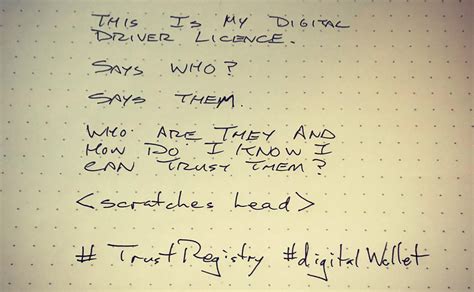 THIS IS MY DIGITAL
DRIVER LICENCE.
SAYS WHO?
SAYS THEM.
WHO ARE THEY AND
HOW DO I KNOW I
CAN TRUST THEM?
<scratches head>
# TrustRegistry #digitalWallet